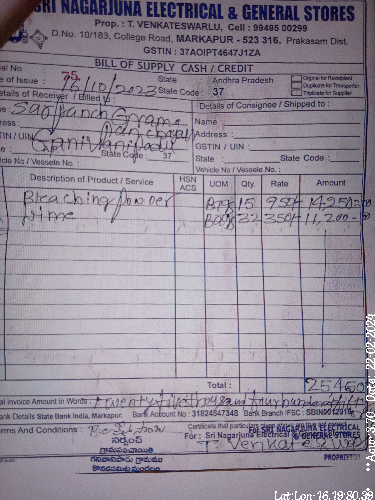 SRI NAGARJUNA ELECTRICAL & GENERAL STORES
Prop. : T. VENKATESWARLU, Cell : 99495 00299
D.No. 10/183, College Road, MARKAPUR - 523 316. Prakasam Dist.
GSTIN : 37AOIPT4647J1ZA
BILL OF SUPPLY CASH / CREDIT
al No. 75
e of Issue : 16/10/2023 State Andhra Pradesh
State Code : 37
Original for Receipient
Duplicate for Transporter
Triplicate for Supplier
etails of Receiver / Billed to :
me Sarpanch Grama
ress Panchayat
TIN / UIN
State Code : 37
ehicle No / Vessele No. :
Details of Consignee / Shipped to :
Name
Address :
GSTIN / UIN :
State State Code :
Vehicle No / Vessele No. :
Description of Product / Service HSN ACS UOM Qty. Rate Amount
Bleaching powder Bag 15 950/- 14250-00
Lime Bag 32 350/- 11,200-00
Total : 25450
al Invoice Amount in Words : Twenty five thousand four hundred fifty
ank Details State Bank India, Markapur. Bank Account No : 31824847348 Bank Branch IFSC : SBIN0012916
rms And Conditions :
Certificate that particulars
For SRI NAGARJUNA ELECTRICAL
For : Sri Nagarjuna Electrical & GENERAL STORES
T. Venkateswarlu
PROPRIETOR
సర్పంచ్
గ్రామపంచాయితి
Lat:Lon-16.19:80.38
Date: 22-02-2024